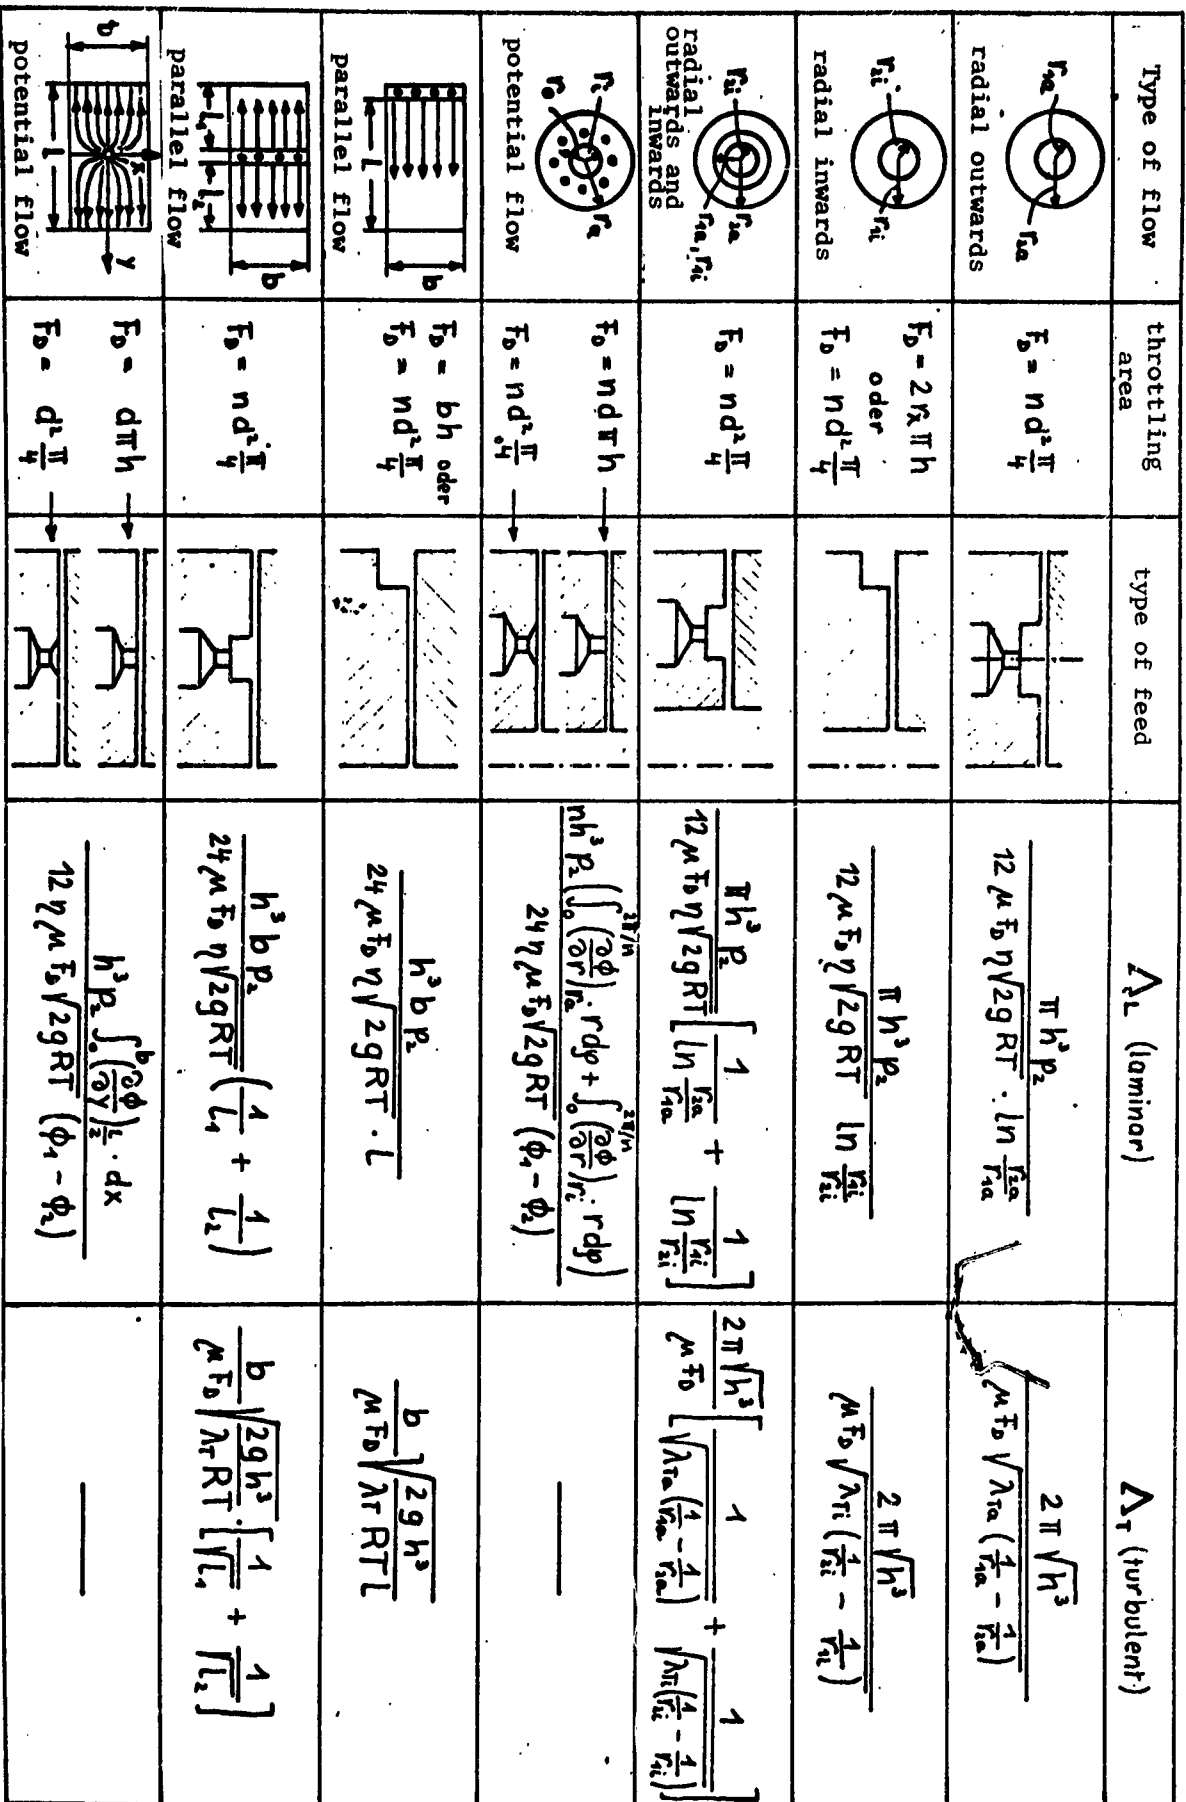 Type of flow
throttling area
type of feed
Λ_L (laminar)
Λ_T (turbulent)
r_1a
r_2a
radial outwards
F_D = n d² π/4
π h³ p₂ / (12 μ F_D η √(2gRT) · ln (r_2a/r_1a))
2π √h³ / (μ F_D √(λ_Ta (1/r_1a − 1/r_2a)))
r_2i
r_1i
radial inwards
F_D = 2 r_x π h
oder
F_D = n d² π/4
π h³ p₂ / (12 μ F_D η √(2gRT) ln (r_1i/r_2i))
2π √h³ / (μ F_D √(λ_Ti (1/r_2i − 1/r_1i)))
r_2i
r_2a
r_1a, r_1i
radial
outwards and
inwards
F_D = n d² π/4
π h³ p₂ / (12 μ F_D η √(2gRT)) [1/(ln (r_2a/r_1a)) + 1/(ln (r_1i/r_2i))]
2π √h³ / (μ F_D) [1/√(λ_Ta (1/r_1a − 1/r_2a)) + 1/√(λ_Ti (1/r_2i − 1/r_1i))]
r_i
r_0
r_a
potential flow
F_D = n d π h
F_D = n d² π/4
n h³ p₂ (∫₀^(2π/n) (∂ϕ/∂r)_ra · r dφ + ∫₀^(2π/n) (∂ϕ/∂r)_ri · r dφ) / (24 η μ F_D √(2gRT) (ϕ₁ − ϕ₂))
—
L
b
parallel flow
F_D = b h oder
F_D = n d² π/4
h³ b p₂ / (24 μ F_D η √(2gRT) · L)
b/(μ F_D) √(2 g h³ / (λ_T R T L))
L₁
L₂
b
parallel flow
F_D = n d² π/4
h³ b p₂ / (24 μ F_D η √(2gRT)) (1/L₁ + 1/L₂)
b/(μ F_D) √(2 g h³ / (λ_T R T)) · [1/√L₁ + 1/√L₂]
b
L
x
y
potential flow
F_D = d π h
F_D = d² π/4
h³ p₂ ∫₀^b (∂ϕ/∂y)_(L/2) · dx / (12 η μ F_D √(2gRT) (ϕ₁ − ϕ₂))
—